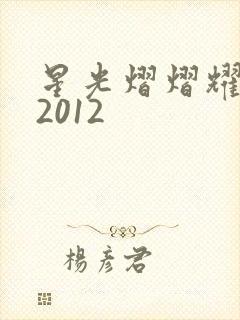 星光熠熠耀
2012
楊彥君